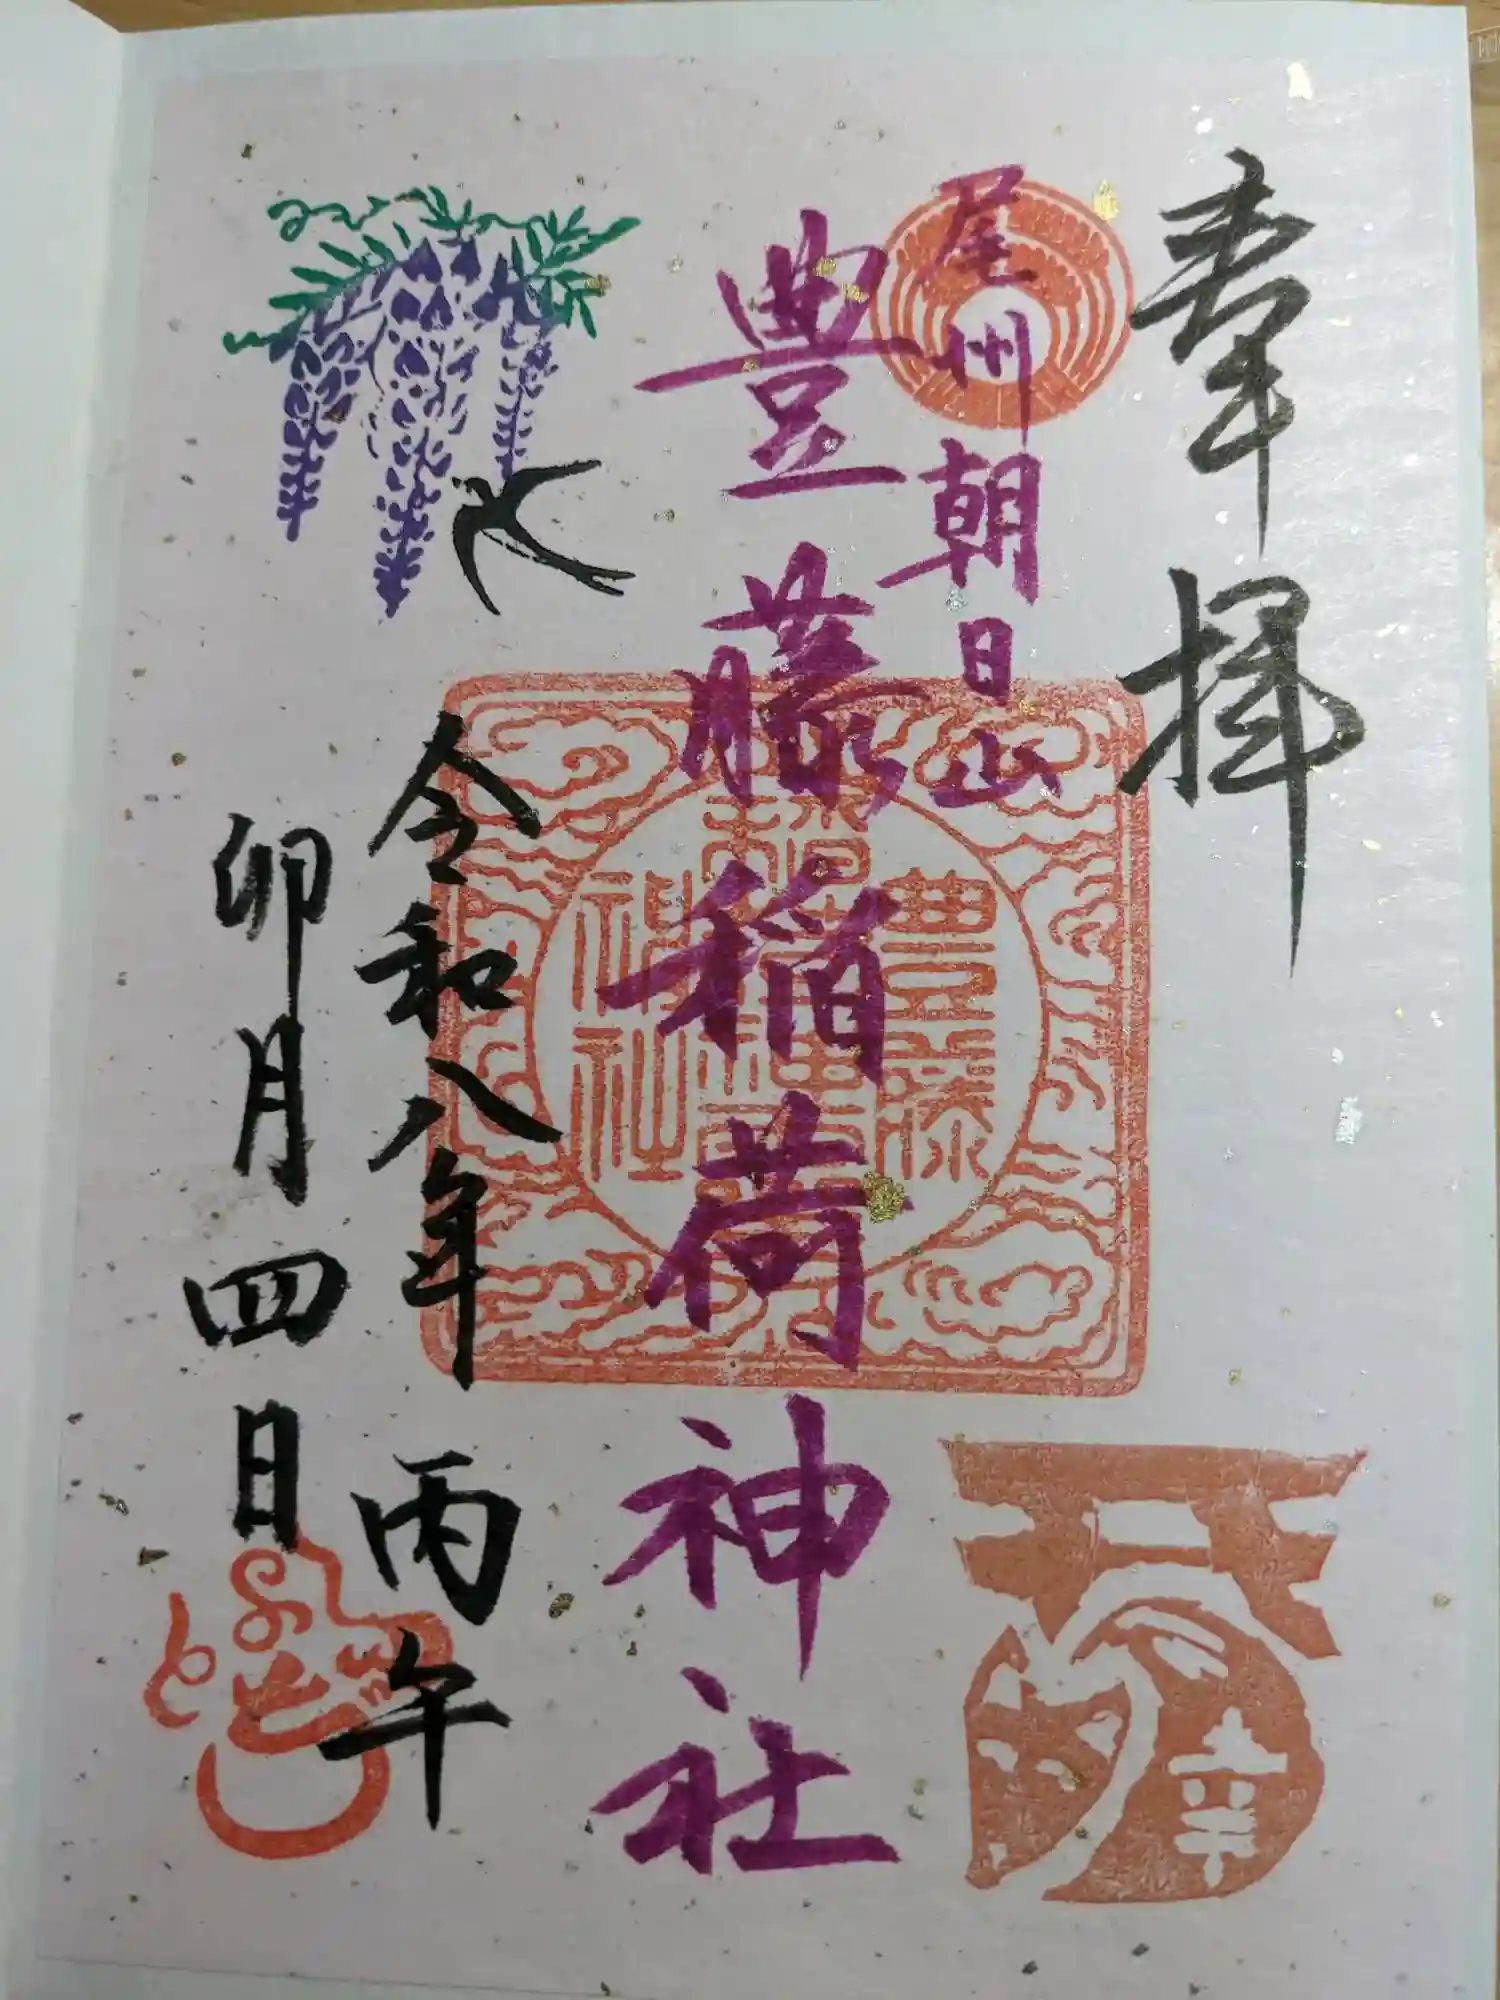 奉拝
尾州朝日山
豊藤稲荷神社
令和八年 丙午
卯月四日
豊藤
稲荷
神社